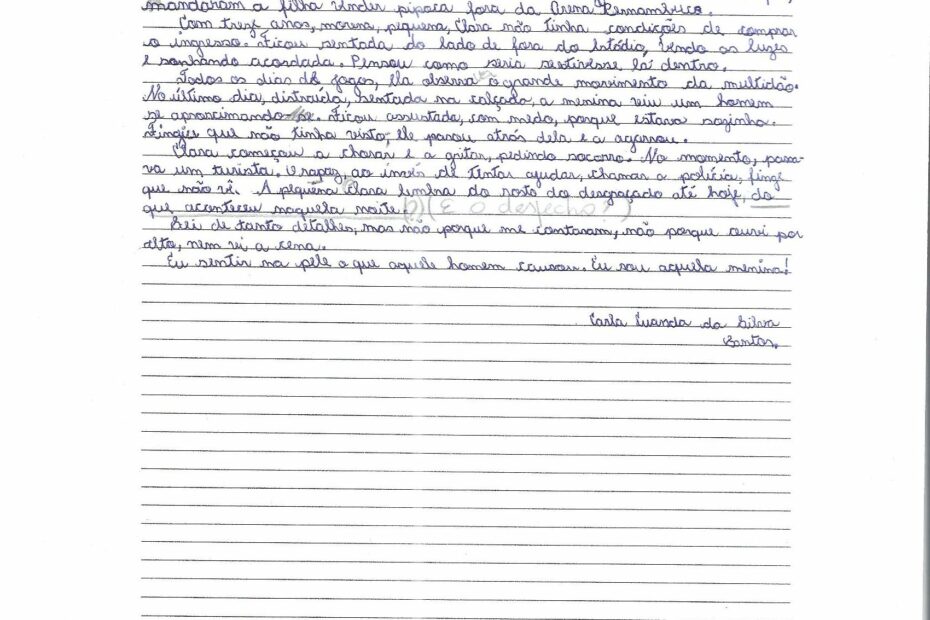 mandaram a filha vender pipoca fora da Arena Pernambuco.
Com treze anos, morena, pequena, Clara não tinha condições de comprar
o ingresso. Ficou sentada do lado de fora do Estádio, vendo as luzes
e sonhando acordada. Pensou como seria se estivesse lá dentro.
Todos os dias de jogos, ela observa o grande movimento da multidão.
No último dia, distraída, sentada na calçada, a menina viu um homem
se aproximando-se. Ficou assustada, com medo, porque estava sozinha.
Fingiu que não tinha visto, ele parou atrás dela e a agarrou.
Clara começou a chorar e a gritar, pedindo socorro. No momento, passa-
va um turista. O rapaz, ao invés de tentar ajudar, chamar a polícia, finge
que não vê. A pequena Clara lembra do rosto do desgraçado até hoje, do
que aconteceu naquela noite. (E o desfecho?)
Sei de tanto detalhes, mas não porque me contaram, não porque ouvi por
alto, nem vi a cena.
Eu sentir na pele o que aquele homem causou. Eu sou aquela menina!
Carla Luanda da Silva
Santos.